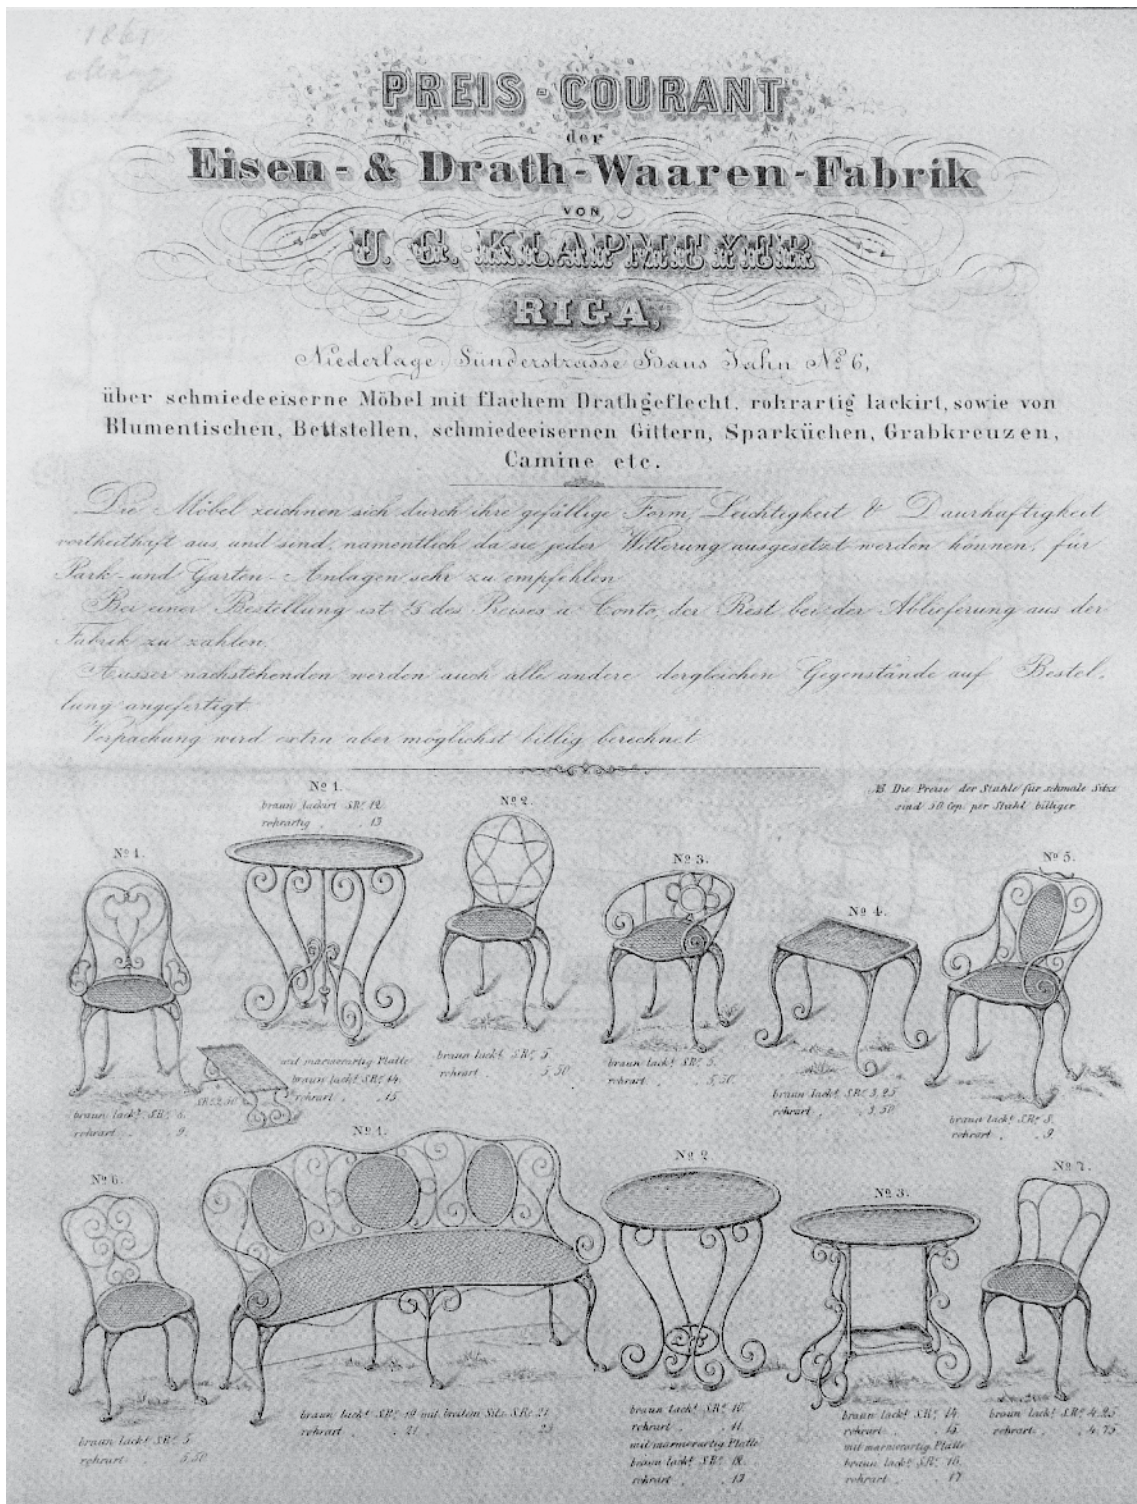 1861
PREIS-COURANT
der
Eisen- & Drath-Waaren-Fabrik
VON
U. G. KLAPMEYER
RIGA,
Niederlage Sünderstrasse Haus Jahn No 6,
über schmiedeeiserne Möbel mit flachem Drathgeflecht, rohrartig lackirt, sowie von
Blumentischen, Bettstellen, schmiedeeisernen Gittern, Sparküchen, Grabkreuzen,
Camine etc.
Die Möbel zeichnen sich durch ihre gefällige Form, Leichtigkeit & Daurhaftigkeit
vortheilhaft aus und sind, namentlich da sie jeder Witterung ausgesetzt werden können, für
Park- und Garten-Anlagen sehr zu empfehlen
Bei einer Bestellung ist ⅓ des Preises a Conto, der Rest bei der Ablieferung aus der
Fabrik zu zahlen.
Ausser nachstehenden werden auch alle andere dergleichen Gegenstände auf Bestel-
lung angefertigt.
Verpackung wird extra aber möglichst billig berechnet
Die Preise der Stühle für schmale Sitze
sind 50 Cop. per Stuhl billiger
No 1.
braun lackirt SRo 12
rohrartig 13
No 2.
No 1.
No 3.
No 5.
No 4.
mit marmorartig Platte
braun lackt SRo 14.
rohrart 15
braun lackt SRo 5
rohrart 5,50
braun lackt SRo 5.
rohrart 5,50
braun lackt SRo 3,25
rohrart 3,50
SRo 2.50
braun lackt SRo
rohrart 9.
braun lackt SRo 8.
rohrart 9
No 1.
No 2.
No 7.
No 6.
No 3.
braun lackt SRo 19 mit breitem Sitz SRo 21
rohrart 21 23
braun lackt SRo 10.
rohrart 11.
mit marmorartig Platte
braun lackt SRo 12.
rohrart 13
braun lackt SRo 14
rohrart 15
mit marmorartig Platte
braun lackt SRo 16.
rohrart 17
braun lackt SRo 4.25
rohrart 4.75
braun lackt SRo 5
rohrart 5,50